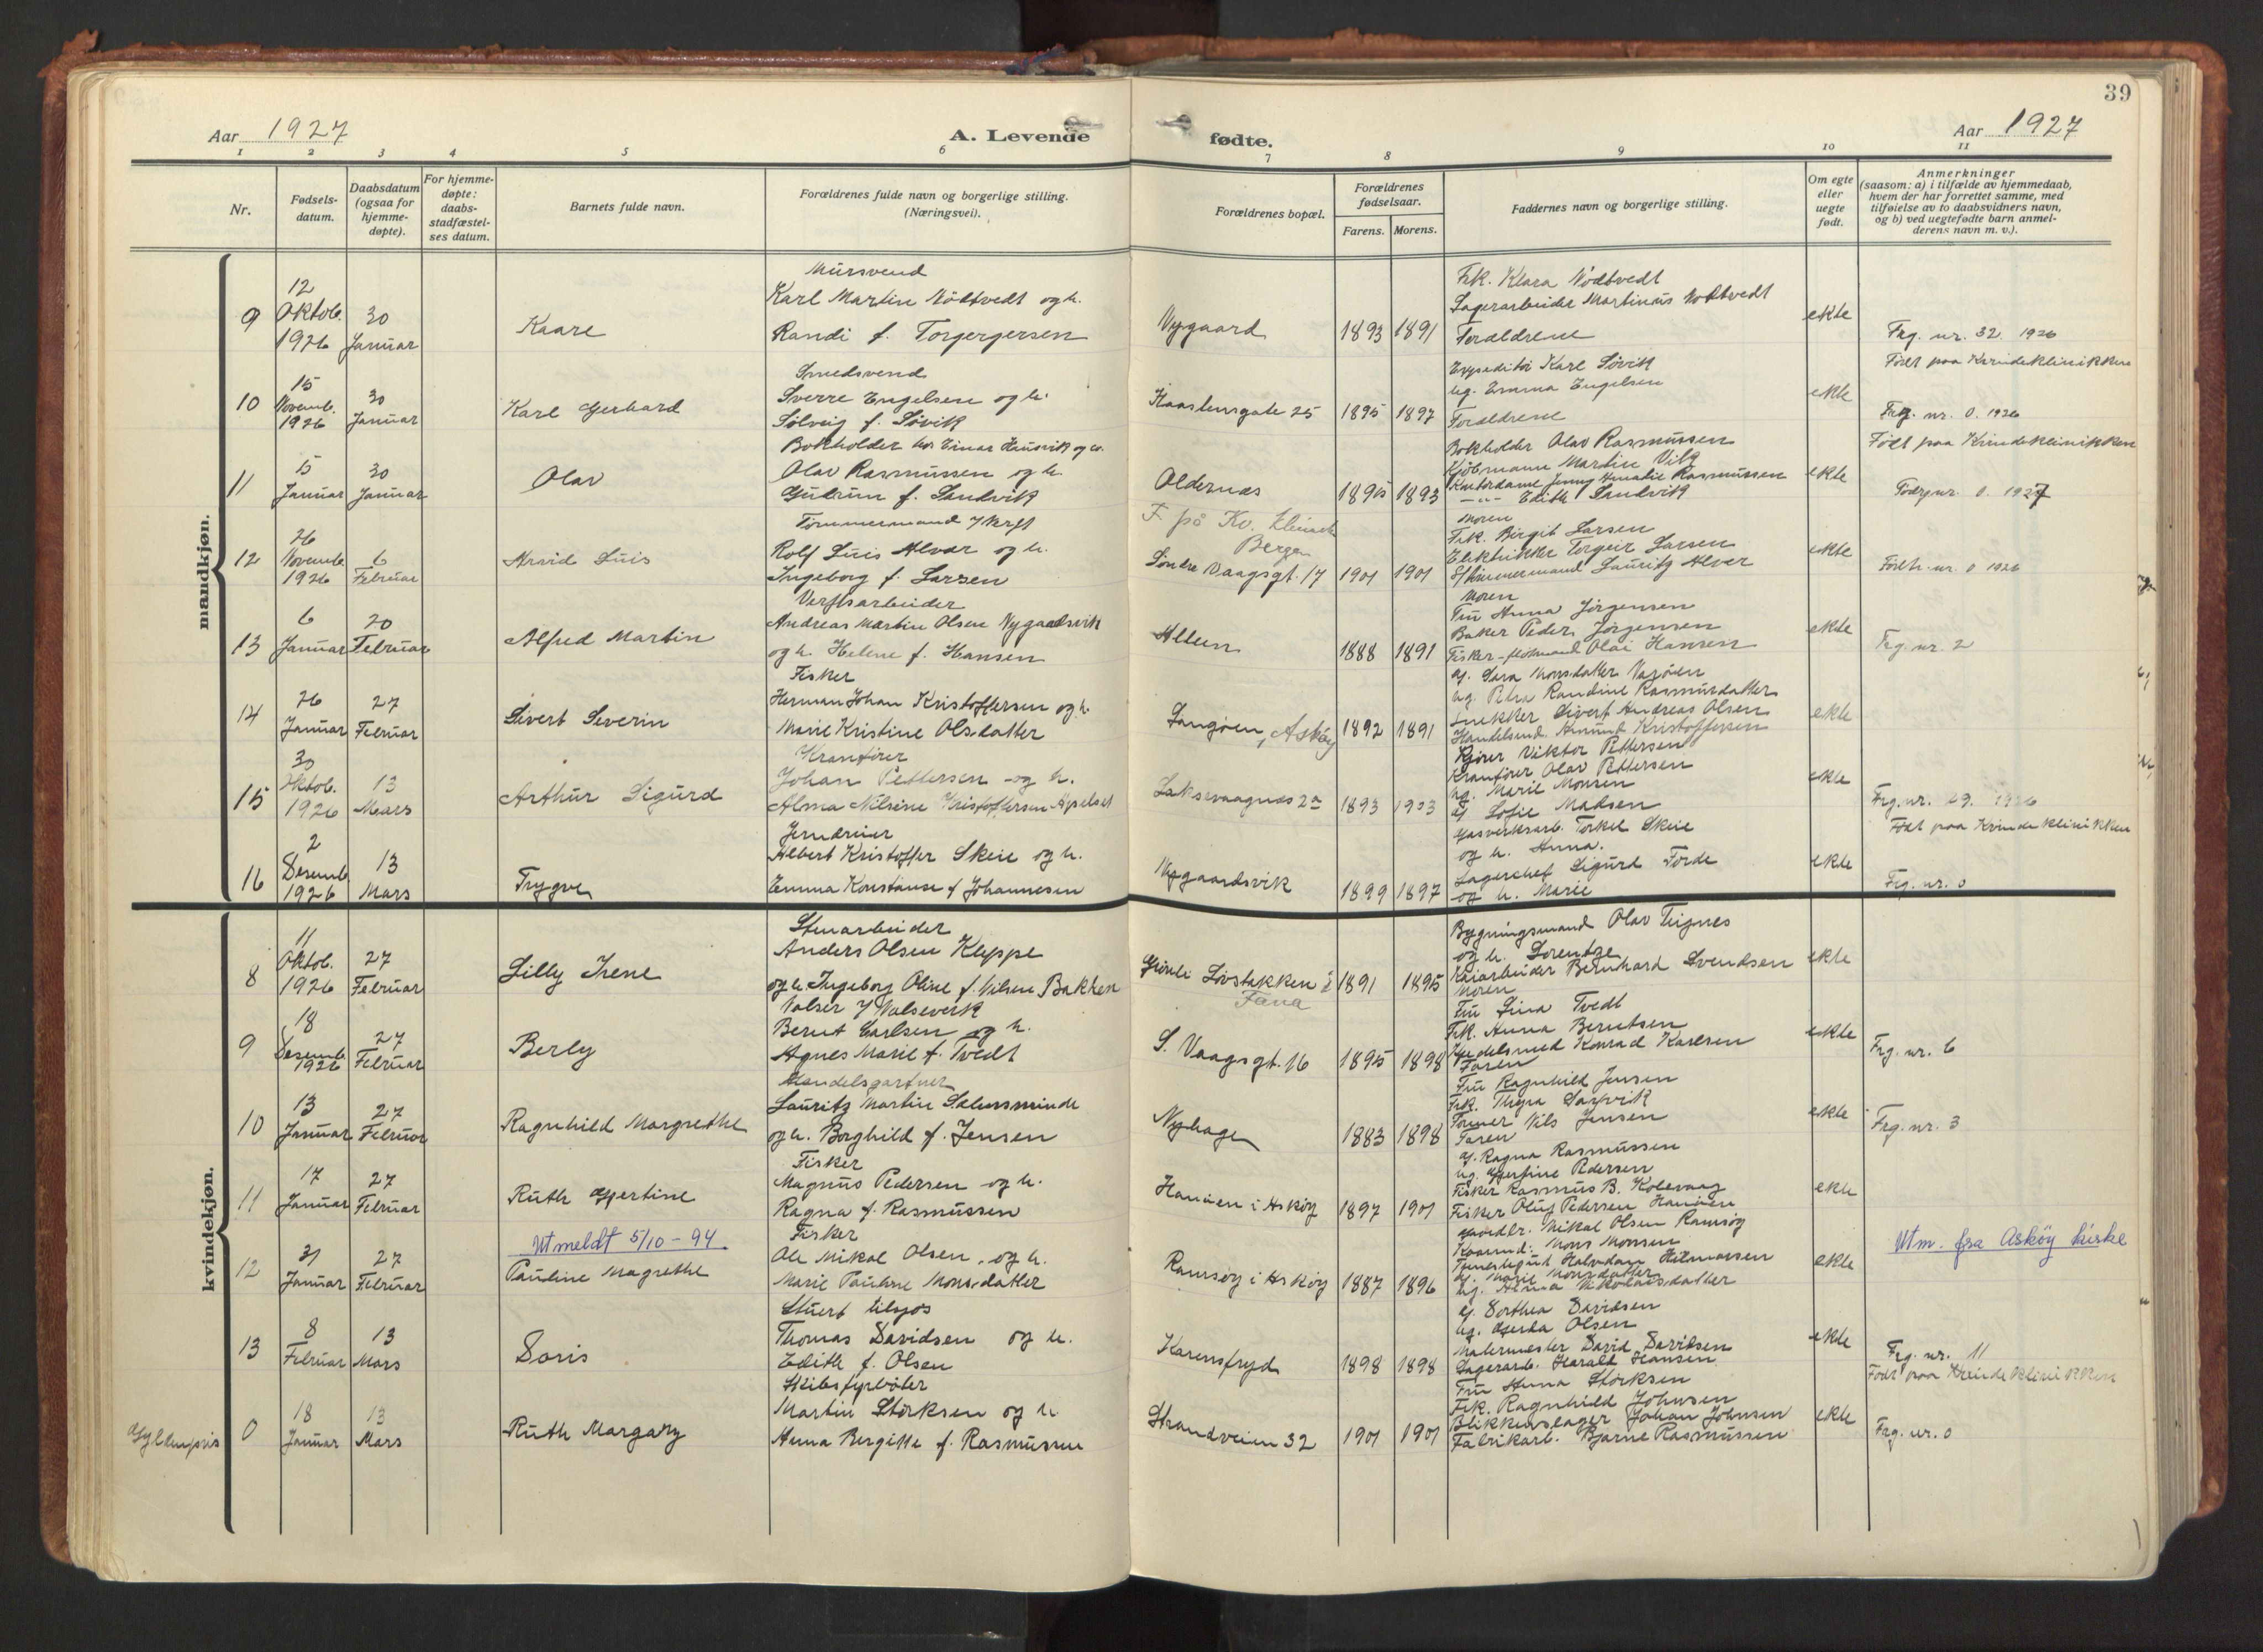 39
Aar 1927
A. Levende
fødte.
Aar 1927
1 2 3 4 5 6 7 8 9 10 11
Nr.
Fødsels-
datum.
Daabsdatum
(ogsaa for
hjemme-
døpte).
For hjemme-
døpte:
daabs-
stadfæstel-
ses datum.
Barnets fulde navn.
Forældrenes fulde navn og borgerlige stilling.
(Næringsvei).
Forældrenes bopæl.
Forældrenes
fødselsaar.
Farens. Morens.
Faddernes navn og borgerlige stilling.
Om egte
eller
uegte
født.
Anmerkninger
(saasom: a) i tilfælde av hjemmedaab,
hvem der har forrettet samme, med
tilføielse av to daabsvidners navn,
og b) ved uegtefødte barn anmel-
derens navn m. v.).
mandkjøn.
9
12
Oktob.
1926
30
Januar
Kaare
Mursvend
Karl Martin Nödtvedt og h.
Randi f. Torgergersen
Nygaard
1893 1891
Frk. Klara Nödtvedt
Lagerarbeider Martinus Nödtvedt
Forældrene
ekte
Fag. nr. 32. 1926
Födt paa Kvindeklinikken
10
15
Novemb.
1926
30
Januar
Karl Gerhard
Smedsvend
Sverre Engelsen og h.
Solveig f. Sövik
Kaastensgate 25
1895 1897
Expeditör Karl Sövik
ug. Emma Engelsen
Forældrene
ekte
Frg. nr. 0. 1926
Födt paa Kvindeklinikken
11
15
Januar
30
Januar
Olav
Bokholder hos Einar Husvik og co.
Olav Rasmussen og h.
Gudrun f. Sandvik
Oldernæs
1895 1893
Bokholder Olav Rasmussen
Kjöbmann Martin Vik
Kontordame Jenny Amalie Rasmussen
—"— Edith Sandvik
Moren
ekte
Födr. nr. 0. 1927
12
26
Novemb.
1926
6
Februar
Arvid Luis
Tömmermand
Rolf Luis Alvær og h.
Ingeborg f. Larsen
F. på Kv. klinik
Bergen
Söndre Vaagsgt. 17
1901 1901
Frk. Birgit Larsen
Elektrikker Torgeir Larsen
Lauritz Alver
Moren
ekte
Födtr. nr. 0 1926
13
6
Januar
20
Februar
Alfred Martin
Verftsarbeider
Andreas Martin Olsen Nygaardsvik
og h. Helene f. Hansen
1888 1891
Fru Anna Jörgensen
Baker Peder Jörgensen
Olai Hansen
ekte
Frg. nr. 2
14
26
Januar
27
Februar
Sivert Severin
Fisker
Herman Johan Kristoffersen og h.
Marie Kristine Olsdatter
Langöen, Asköy
1892 1891
g. Sara Monsdatter
ug. Petra Randine Rasmusdatter
Snekker Sivert Andreas Olsen
Handelsmd. Amund Kristoffersen
ekte
15
30
Oktob.
1926
13
Mars
Arthur Sigurd
Kranförer
Johan Pettersen og h.
Alma Nilsine Kristoffersen
Laksevaagnes 2a
1893 1903
Viktor Pettersen
Kranförer Olav Pettersen
ug. Marie Monsen
g. Sofie Madsen
ekte
Frg. nr. 29. 1926
Födt paa Kvindeklinikken
16
2
Desemb.
1926
13
Mars
Trygve
Jerndreier
Albert Kristoffer Skeie og h.
Emma Konstanse f. Johannesen
Nygaardsvik
1899 1897
Gasverksarb. Torkel Skeie
og h. Anna.
Lagerchef Sigurd Förde
og h. Marie
ekte
Frg. nr. 0
kvindekjøn.
8
11
Oktob.
1926
27
Februar
Lilly Irene
Stenarbeider
Anders Olsen Kleppe
og h. Ingeborg Oline f. Nilsen Bakken
Lövstakken i
Fana
1891 1895
Bygningsmand Olav Teignes
og h. Lorentze
Kaiarbeider Bernhard Svendsen
Moren
ekte
9
18
Desemb.
1926
27
Februar
Berly
Valser / Valseverk
Bernt Carlsen og h.
Agnes Marie f. Tvedt
S. Vaagsgt. 16
1895 1898
Fru Lina Tvedt
Frk. Anna Berntsen
Konrad Karlsen
Faren
ekte
Frg. nr. 6
10
13
Januar
27
Februar
Ragnhild Margrethe
Handelsgartner
Lauritz Martin Salensminde
og h. Borghild f. Jensen
Nyhagen
1883 1898
Fru Ragnhild Jensen
Frk. Thyra Sarvik
Former Nils Jensen
Faren
ekte
Frg. nr. 3
11
17
Januar
27
Februar
Ruth Gjertine
Fisker
Magnus Pedersen og h.
Ragna f. Rasmussen
Hanöen i Asköy
1897 1901
g. Ragna Rasmussen
ug. Gjertine Pedersen
Fisker Rasmus B. Kolevaag
Fisker Oluf Pedersen Hanöen
ekte
12
31
Januar
27
Februar
Utmeldt 5/10-94.
Pauline Magrethe
Fisker
Ole Mikal Olsen og h.
Marie Pauline Monsdatter
Ramsöy i Asköy
1887 1896
Mikal Olsen Ramsöy
Mons Monsen
Halvdan Hilmarsen
g. Marie Monsdatter
ug. Alma Nikolaisdatter
ekte
Utm. fra Asköy kirke
13
8
Februar
13
Mars
Doris
Stuert tilsjøs
Thomas Davidsen og h.
Edith f. Olsen
Karensfryd
1898 1898
g. Dorthea Davidsen
ug. Gjerda Olsen
Malermester David Davidsen
Lagerarb. Harald Hansen
ekte
Frg. nr. 11
Födt paa Kvindeklinikken
Gyldenpris
0
18
Januar
13
Mars
Ruth Margary
Skibsfyrböter
Martin Störksen og h.
Anna Bergitte f. Rasmussen
Strandveien 32
1901 1901
Fru Anna Störksen
Frk. Ragnhild Johnsen
Blikkenslager Johan Johnsen
Fabrikarb. Bjarne Rasmussen
ekte
Frg. nr. 0